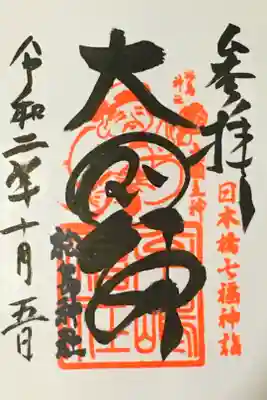 参拝
日本橋七福神詣
大国神
松島神社
令和二年十月五日